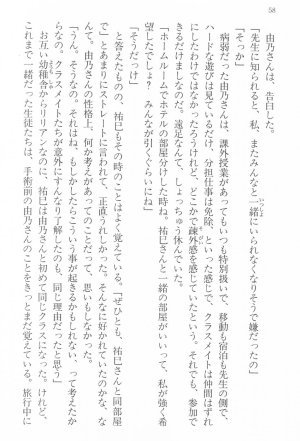 58
由乃さんは、告白した。
「先生に知られると、私、またみんなと一緒にいられなくなりそうで嫌だったの」
「それは」
病弱だった由乃さんは、課外授業があってもいつも特別扱いで、移動も宿泊も先生の側で、
ハードな遊びは見ているだけ、分担仕事は免除、といった感じで、クラスメイトは仲間はずれ
にしたわけではなかったろうけれど、どこかで疎外感を感じていたという。それでも、参加で
きるだけましだったのだ。遠足なんて、しょっちゅう休んでいた。
「ホームルームでホテルの部屋分けした時ね。祐巳さんと一緒の部屋がいいって、私が強く希
望したでしょ？　みんなが引くぐらいに」
「そうだっけ」
と答えたものの、祐巳もその時のことはよく覚えている。「ぜひとも、祐巳さんと同部屋
で」とあまりにストレートに言われて、正直うれしかった。そんなに好かれていたのかな、な
んて。由乃さんの性格上、何か考えがあってのことだって、思ったけれど。
「うん。そうなの。それはね、もしかしたらこういう事が起きるかもしれない、って考えたか
らなの。クラスメイトたちが意外にすんなり了解したのも、同じ理由だったと思う」
お互い幼稚舎からリリアンなのに、祐巳は由乃さんと初めて同じクラスになった。けれど、
これまで一緒だった生徒たちは、手術前の由乃さんのことをまだ覚えている。旅行中に